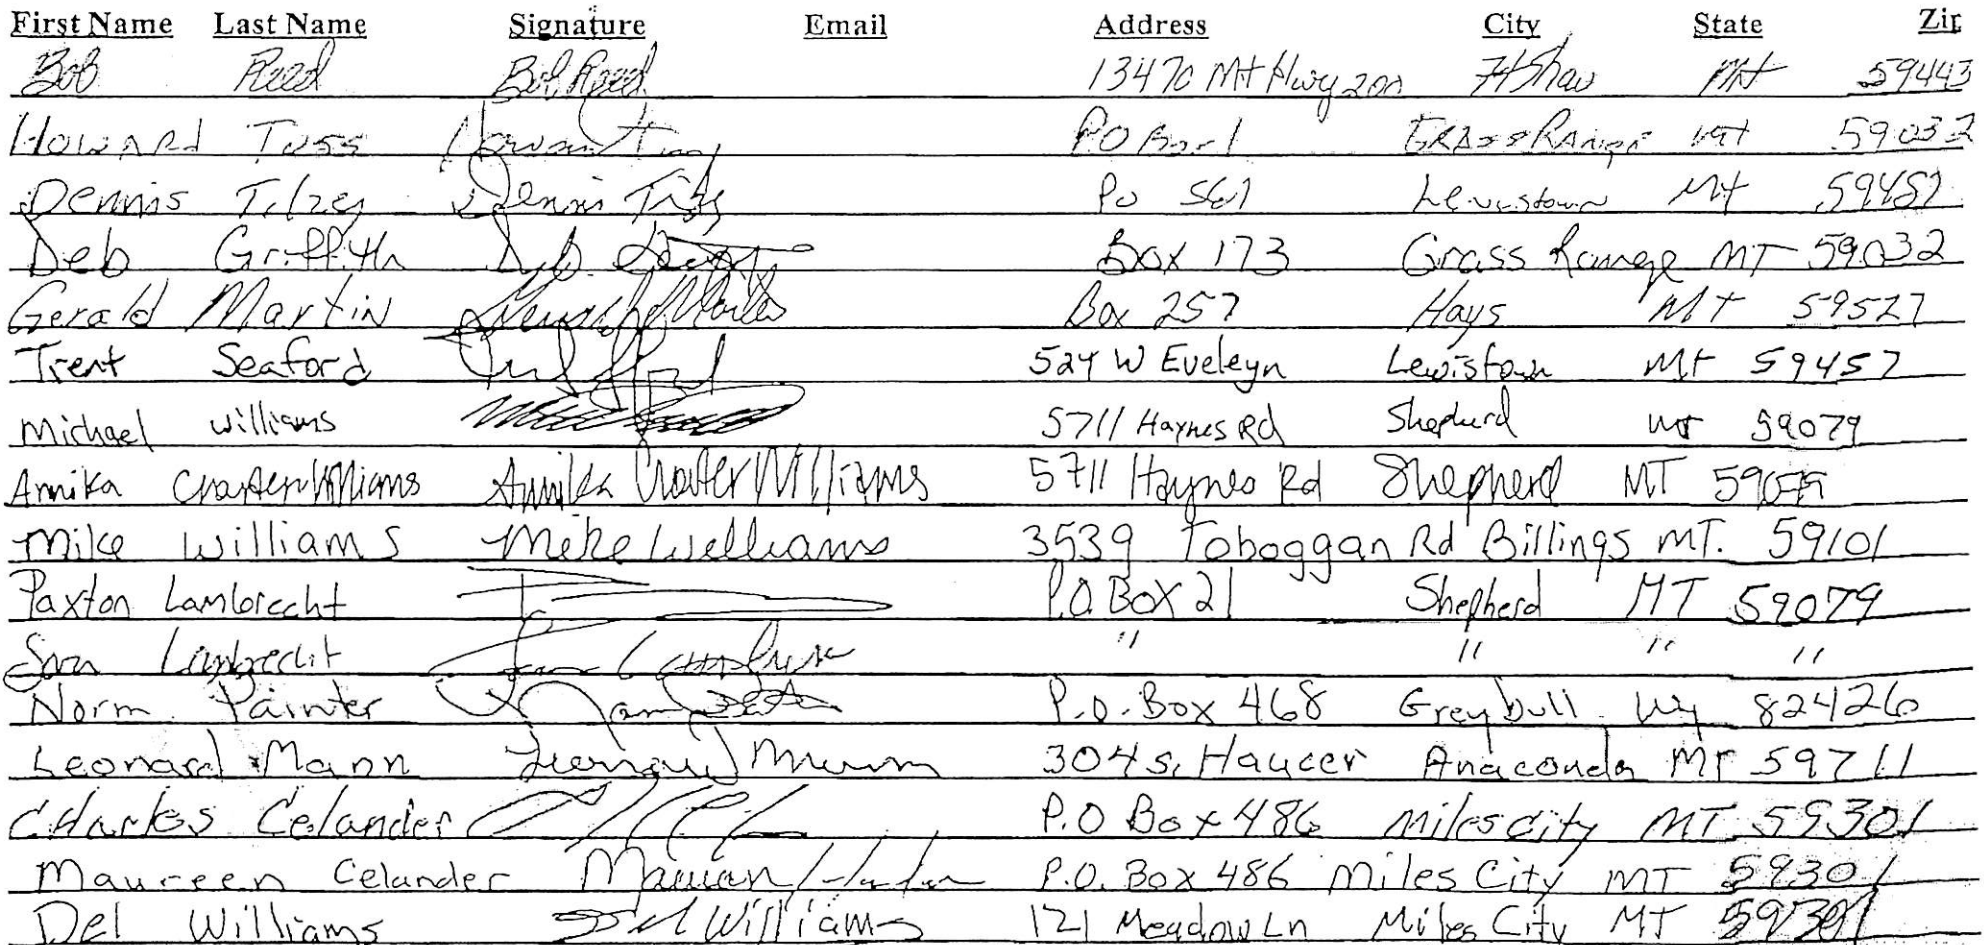 First Name Last Name Signature Email Address City State Zip
Bob Reed Bob Reed 13470 Mt Hwy 200 Ft Shaw Mt 59443
Howard Tuss PO Box 1 Grass Range Mt 59032
Dennis Tilzey Dennis Po 561 Lewistown Mt 59457
Deb Griffith Deb Box 173 Grass Range MT 59032
Gerald Martin Gerald Martin Box 257 Hays MT 59527
Trent Seaford 524 W Eveleyn Lewistown Mt 59457
Michael Williams 5711 Haynes Rd Shepherd MT 59079
Annika Charter Williams Annika Charter Williams 5711 Haynes Rd Shepherd MT 59079
Mike Williams Mike Williams 3539 Toboggan Rd Billings MT. 59101
Paxton Lambrecht P.O. Box 21 Shepherd MT 59079
Lambrecht " " " "
Norm Painter X P.O. Box 468 Greybull Wy 82426
Leonard Mann Leonard Mann 304 S, Haucer Anaconda MT 59711
Charles Celander P.O Box 486 Miles City MT 59301
Maureen Celander P.O. Box 486 Miles City MT 59301
Del Williams Del Williams 121 Meadow Ln Miles City MT 59301